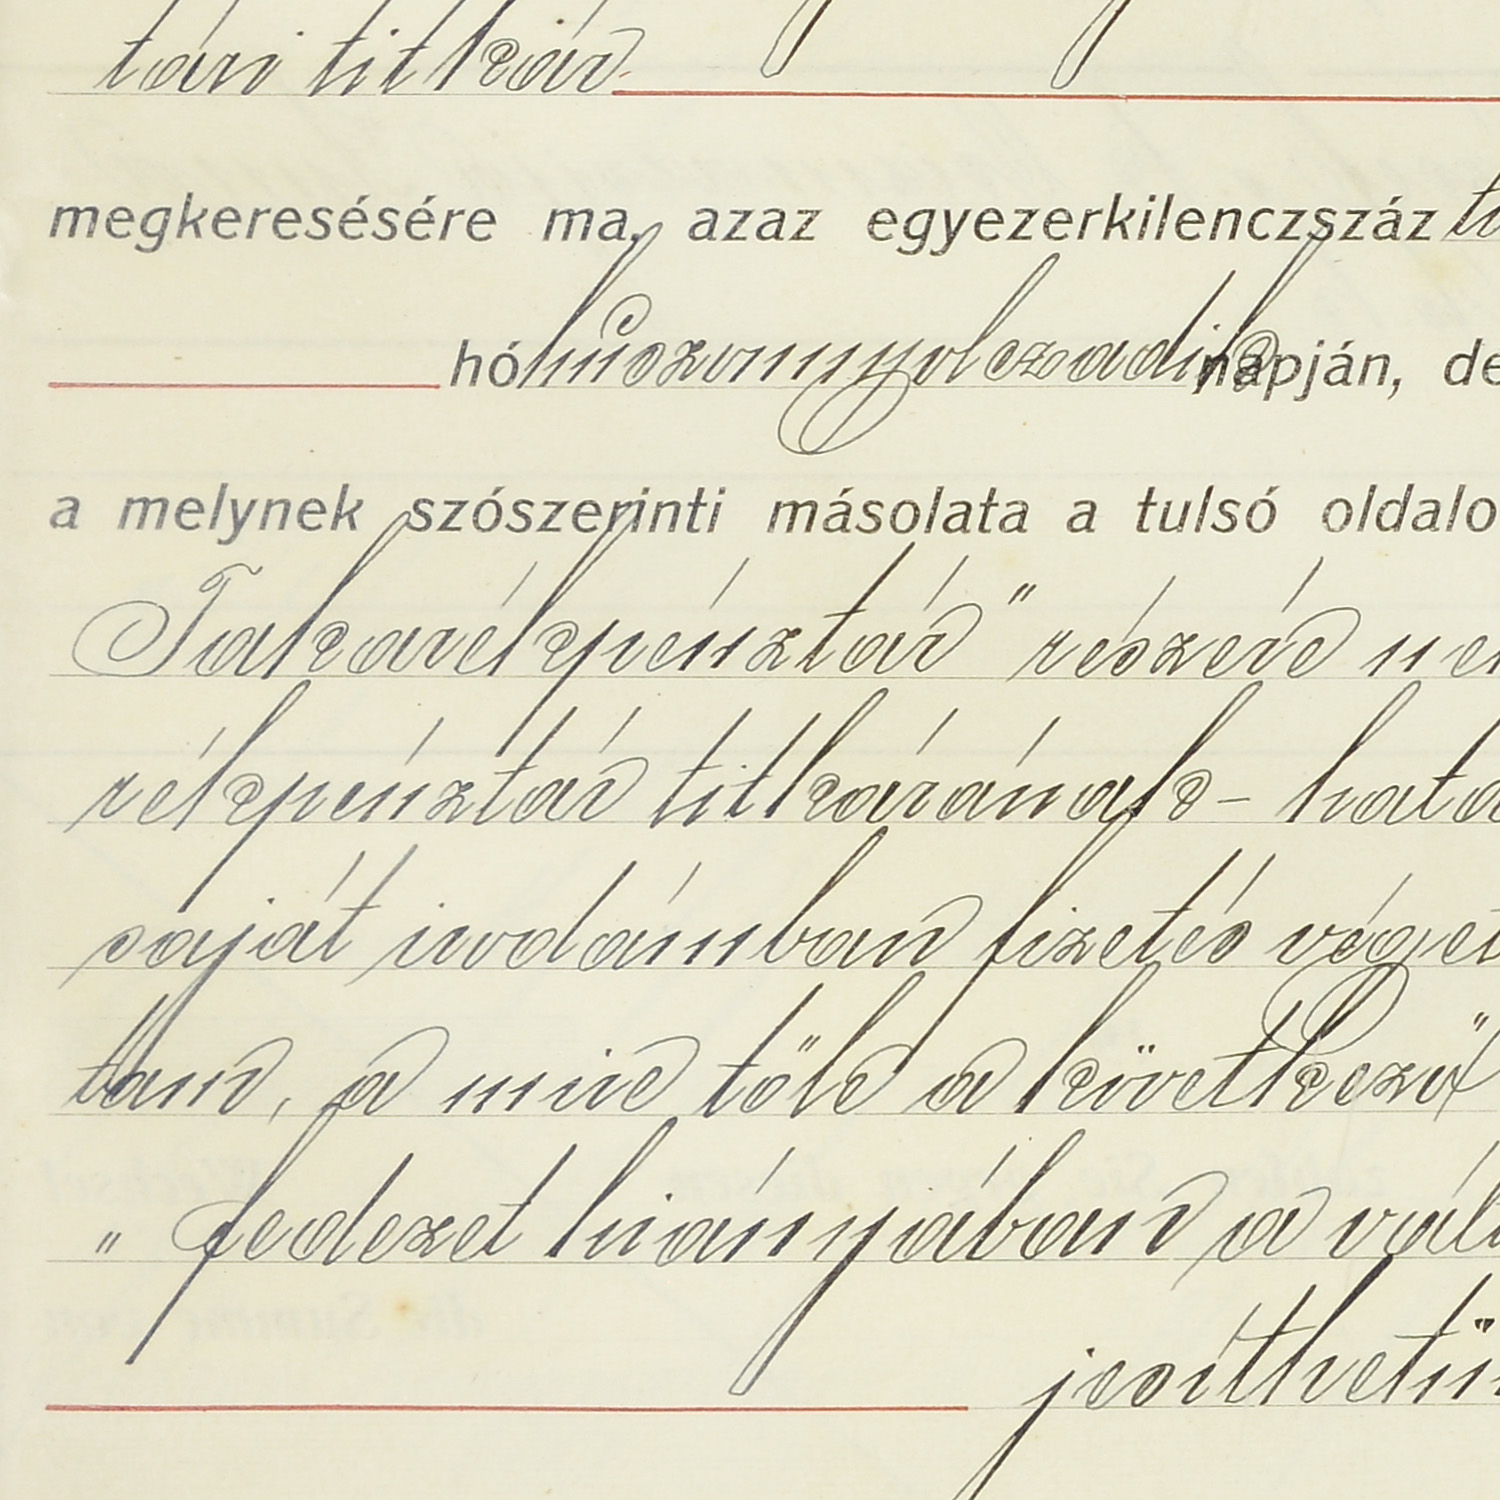 tári titkár
megkeresésére ma, azaz egyezerkilenczszáz
hó huszonnyolczadik napján, de
a melynek szószerinti másolata a tulsó oldalo
Takarékpénztár" részére
rékpénztár titkáránák – hata
saját irodámban fizetés véget
tam, a mire tőle a következő
" fedezet hiányában a vált
jesithetün